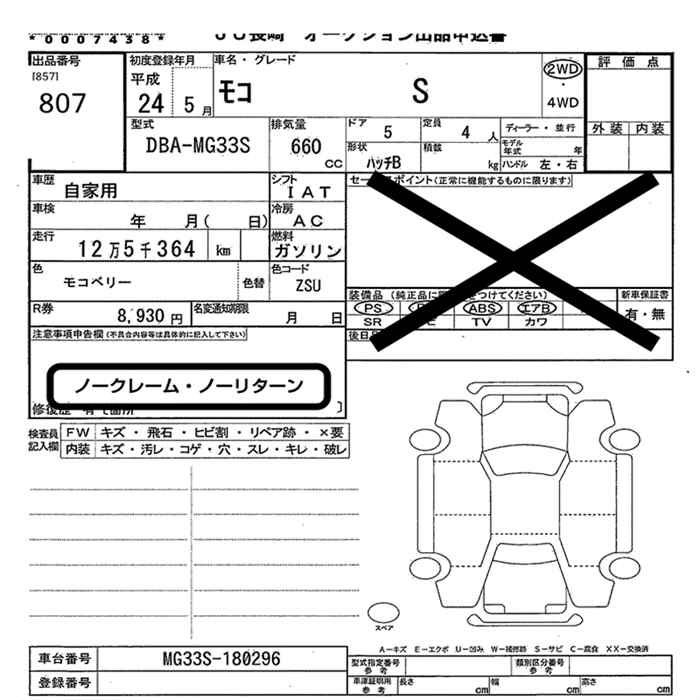 *0007438*
JU長崎 オークション出品申込書
出品番号
[857]
807
初度登録年月
平成
24 5月
車名・グレード
モコ S
2WD
・
4WD
評価点
外装 内装
型式
DBA-MG33S
排気量
660
CC
ドア
5
定員
4 人
ディーラー・並行
形状
ハッチB
積載
kg
モデル年式 年
ハンドル 左・右
車歴
自家用
シフト
IAT
車検
年 月( 日)
冷房
AC
走行
12万5千364 km
燃料
ガソリン
色
モコベリー
色替
色コード
ZSU
R券
8,930円
名変通知期限
月 日
セールスポイント(正常に機能するものに限ります)
装備品
PS ABS エアB
SR TV カワ
新車保証書
有・無
後日
注意事項申告欄(不具合内容等は具体的に記入して下さい)
ノークレーム・ノーリターン
修復歴 有 で箇所 〕
検査員記入欄
FW キズ・飛石・ヒビ割・リペア跡・×要
内装 キズ・汚レ・コゲ・穴・スレ・キレ・破レ
スペア
A−キズ E−エクボ U−凹み W−補修跡 S−サビ C−腐食 XX−交換済
車台番号 MG33S-180296
登録番号
型式指定番号
参考
類別区分番号
参考
車庫証明用
参考
長さ cm 幅 cm 高さ cm